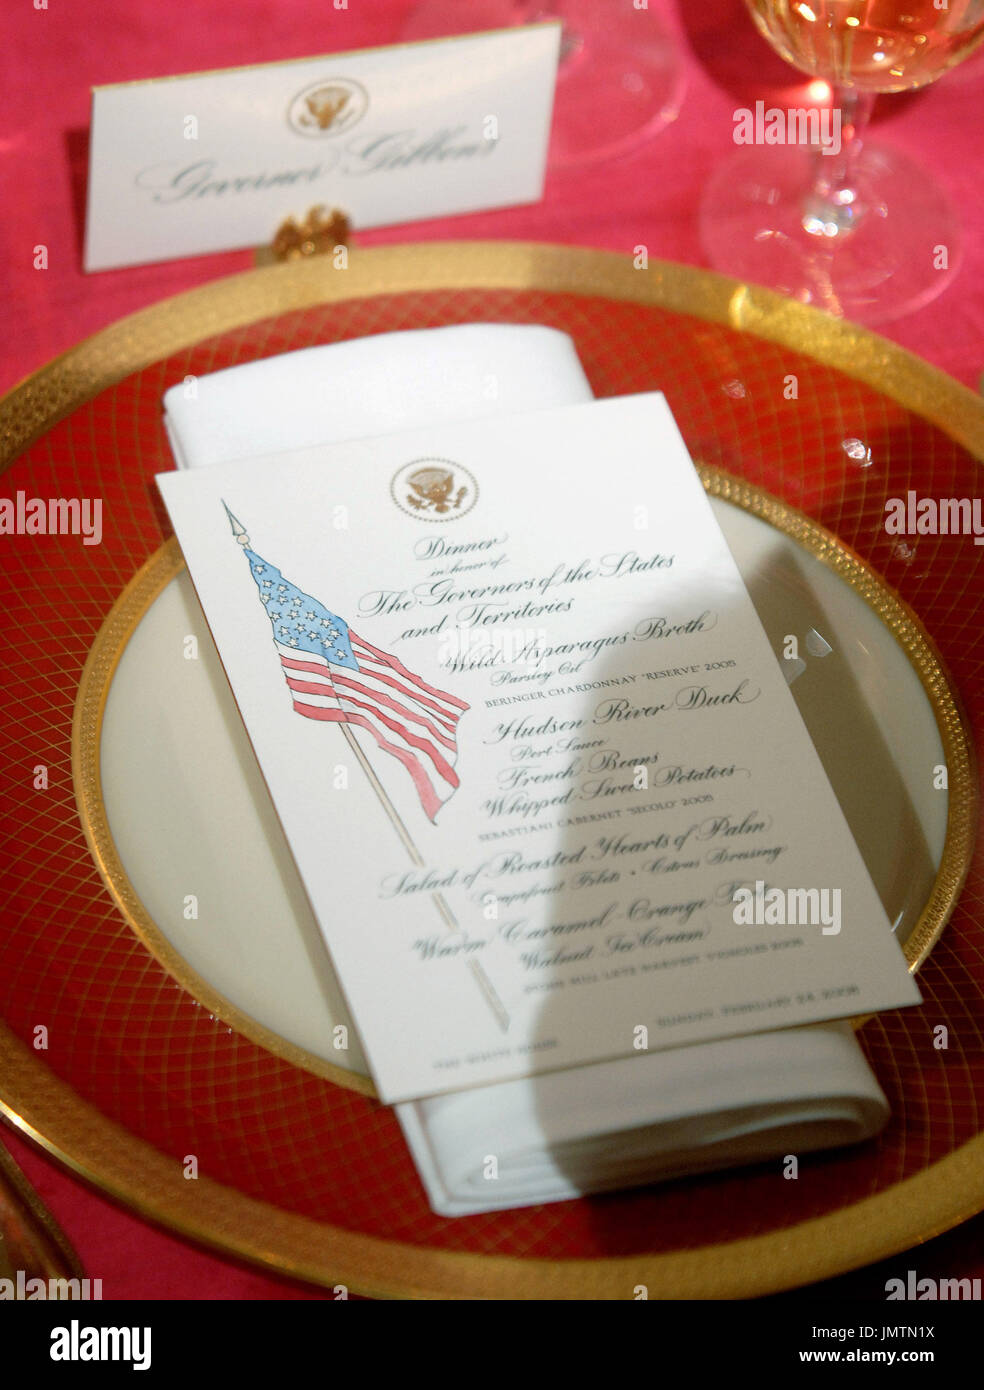 Governor Gibbons
Dinner
in honor of
The Governors of the States
and Territories
Wild Asparagus Broth
Parsley Oil
BERINGER CHARDONNAY "RESERVE" 2005
Hudson River Duck
Port Sauce
French Beans
Whipped Sweet Potatoes
SEBASTIANI CABERNET "SECOLO" 2005
Salad of Roasted Hearts of Palm
Grapefruit Filets • Citrus Dressing
Warm Caramel-Orange
Walnut Ice Cream
STONE HILL LATE HARVEST VIGNOLES 2005
SUNDAY, FEBRUARY 24, 2008
THE WHITE HOUSE
alamy
alamy
Image ID: JMTN1X
www.alamy.com